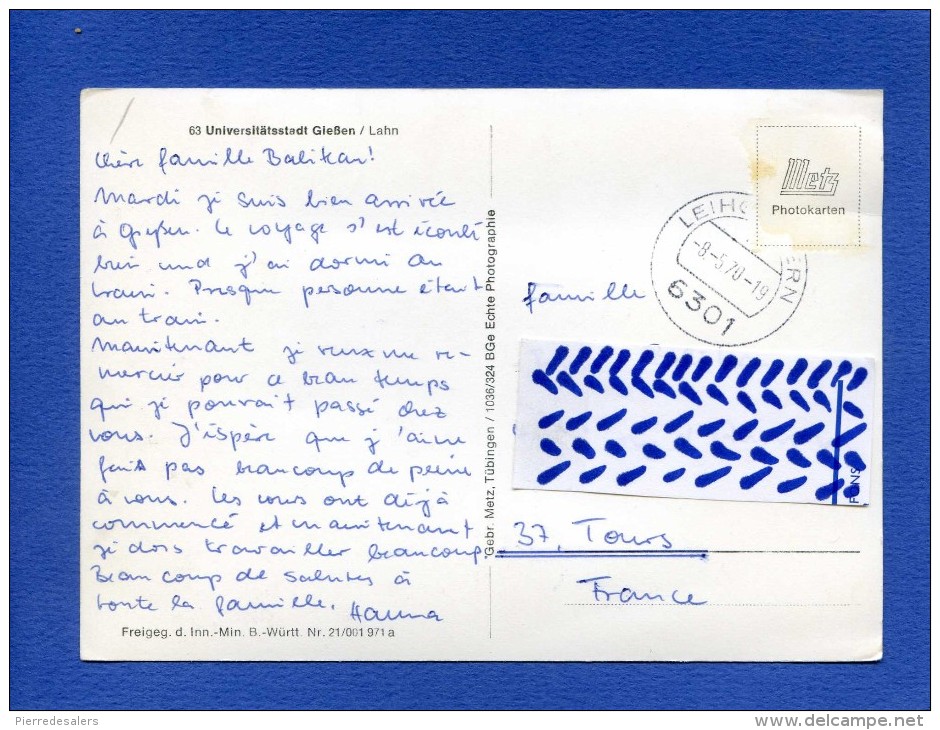 63 Universitätsstadt Gießen / Lahn
Chère famille Balikan!
Mardi je suis bien arrivée
à Gießen. Le voyage s'est écoulé
bien und j'ai dormi au
train. Presque personne était
au train.
Maintenant je veux me re-
mercier pour ce beau temps
que je pouvait passé chez
vous. J'espère que j'ai ne
fait pas beaucoup de peine
à vous. Les cours ont déjà
commencé et maintenant
je dois travailler beaucoup
Beaucoup de salutes à
toute la famille. Hanna
Freigeg. d. Inn.-Min. B.-Württ. Nr. 21/001 971 a
Gebr. Metz, Tübingen / 1036/324 BGe Echte Photographie
Metz
Photokarten
-8-5.70-19
6301
famille
37, Tours
France
Pierredesalers
www.delcampe.net